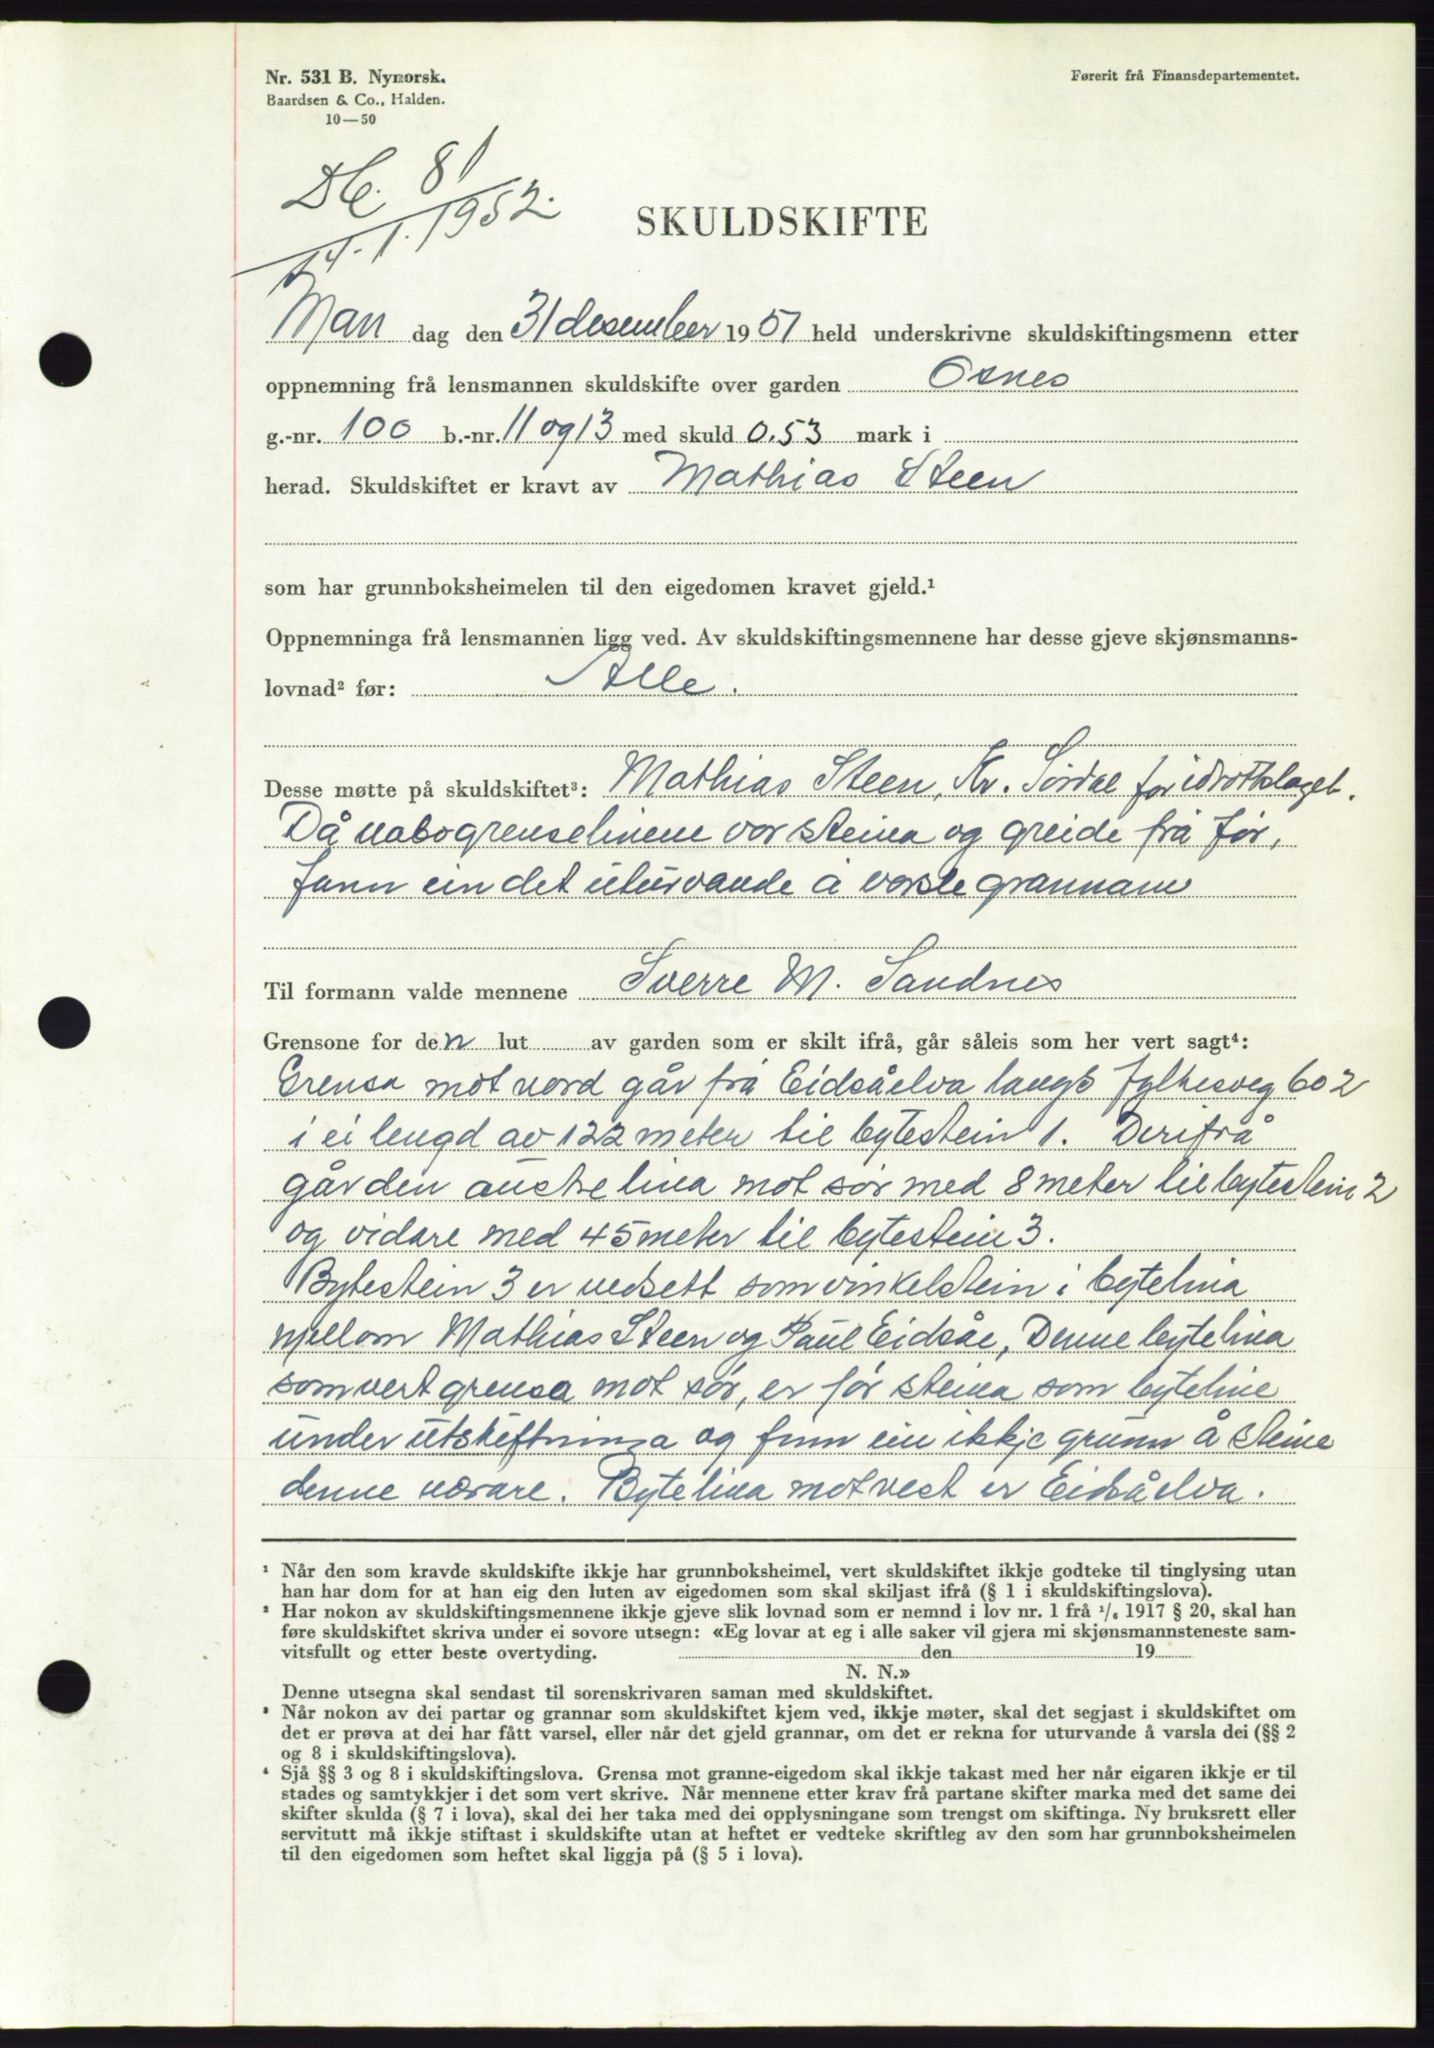 Nr. 531 B. Nynorsk.
Baardsen & Co., Halden.
10—50
Førerit frå Finansdepartementet.
Db. 81
14.1.1952.
SKULDSKIFTE
Man dag den 31 desember 1951 held underskrivne skuldskiftingsmenn etter
oppnemning frå lensmannen skuldskifte over garden Osnes
g.-nr. 100 b.-nr. 11 og 13 med skuld 0.53 mark i
herad. Skuldskiftet er kravt av Mathias Steen
som har grunnboksheimelen til den eigedomen kravet gjeld.¹
Oppnemninga frå lensmannen ligg ved. Av skuldskiftingsmennene har desse gjeve skjønsmanns-
lovnad² før: Alle.
Desse møtte på skuldskiftet³: Mathias Steen, Kr. Sørdal for idrottslaget.
Då nabogrenselinene var steina og greide frå før,
fann ein det uturvande å varsle grannane
Til formann valde mennene Sverre M. Sandnes
Grensone for den lut av garden som er skilt ifrå, går såleis som her vert sagt⁴:
Grensa mot nord går frå Eidsåelva langs fylkesveg 602
i ei lengd av 122 meter til bytestein 1. Derifrå
går den austre lina mot sør med 8 meter til bytestein 2
og vidare med 45 meter til bytestein 3.
Bytestein 3 er nedsett som vinkelstein i bytelina
mellom Mathias Steen og Paul Eidsåe, Denne bytelina
som vert grensa mot sør, er før steina som byteline
under utskiftninga og finn ein ikkje grunn å steine
denne nærare. Bytelina mot vest er Eidsåelva.
¹ Når den som kravde skuldskifte ikkje har grunnboksheimel, vert skuldskiftet ikkje godteke til tinglysing utan
han har dom for at han eig den luten av eigedomen som skal skiljast ifrå (§ 1 i skuldskiftingslova).
² Har nokon av skuldskiftingsmennene ikkje gjeve slik lovnad som er nemnd i lov nr. 1 frå ¹/₆ 1917 § 20, skal han
føre skuldskiftet skriva under ei sovore utsegn: «Eg lovar at eg i alle saker vil gjera mi skjønsmannsteneste sam-
vitsfullt og etter beste overtyding. den 19
N. N.»
Denne utsegna skal sendast til sorenskrivaren saman med skuldskiftet.
³ Når nokon av dei partar og grannar som skuldskiftet kjem ved, ikkje møter, skal det segjast i skuldskiftet om
det er prøva at dei har fått varsel, eller når det gjeld grannar, om det er rekna for uturvande å varsla dei (§§ 2
og 8 i skuldskiftingslova).
⁴ Sjå §§ 3 og 8 i skuldskiftingslova. Grensa mot granne-eigedom skal ikkje takast med her når eigaren ikkje er til
stades og samtykkjer i det som vert skrive. Når mennene etter krav frå partane skifter marka med det same dei
skifter skulda (§ 7 i lova), skal dei her taka med dei opplysningane som trengst om skiftinga. Ny bruksrett eller
servitutt må ikkje stiftast i skuldskifte utan at heftet er vedteke skriftleg av den som har grunnboksheimelen
til den eigedomen som heftet skal liggja på (§ 5 i lova).